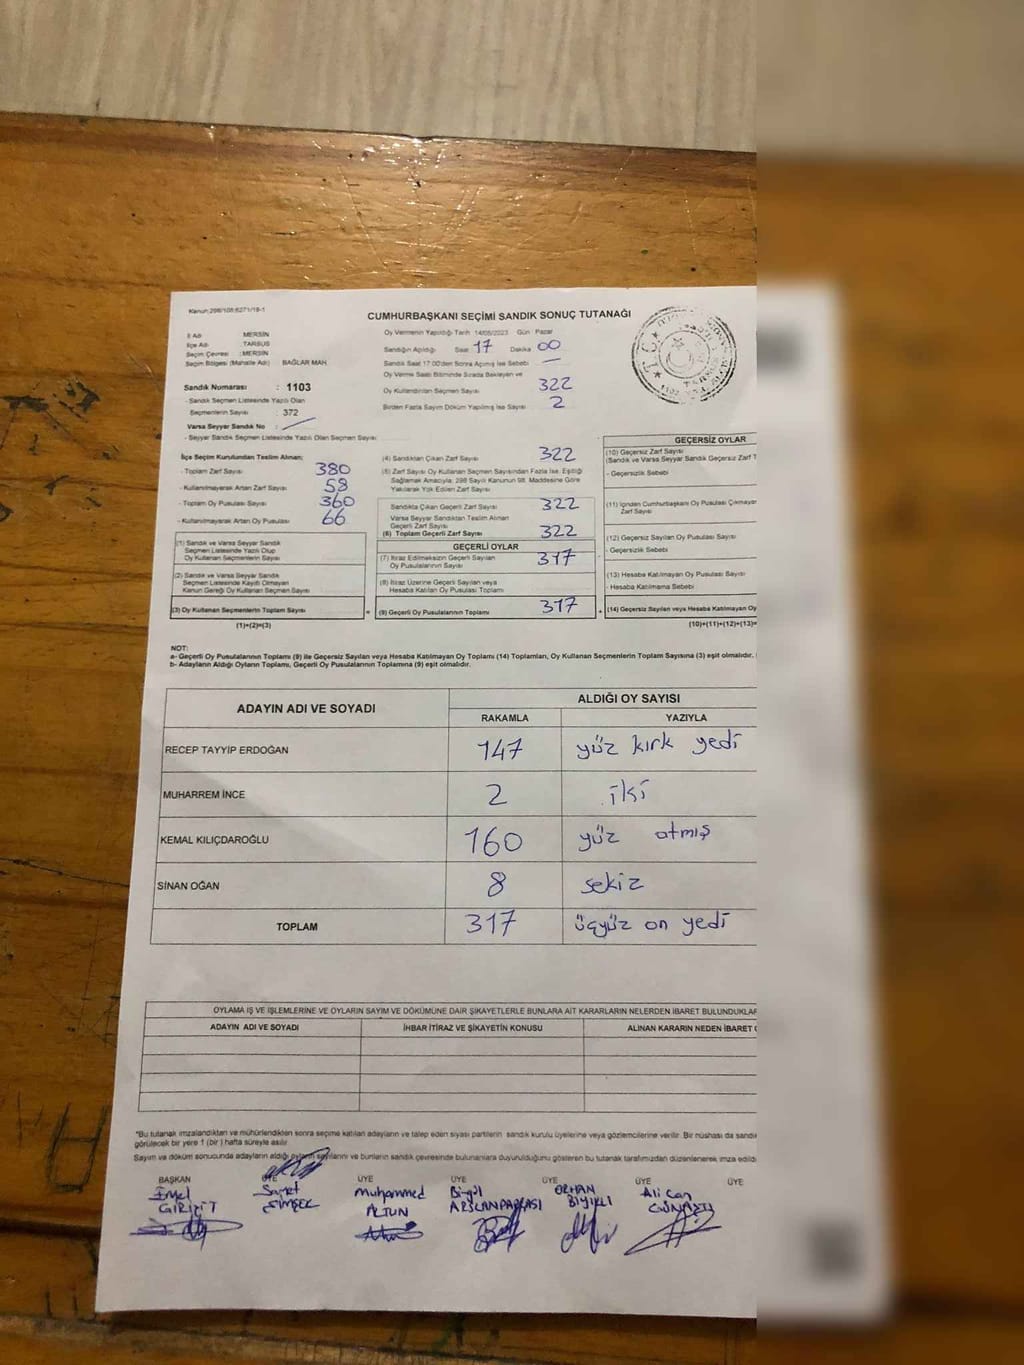 Kanun:298/108;6271/19-1
CUMHURBAŞKANI SEÇİMİ SANDIK SONUÇ TUTANAĞI
İl Adı : MERSİN
İlçe Adı : TARSUS
Seçim Çevresi : MERSİN
Seçim Bölgesi (Mahalle Adı) : BAĞLAR MAH.
Sandık Numarası : 1103
- Sandık Seçmen Listesinde Yazılı Olan
Seçmenlerin Sayısı : 372
Varsa Seyyar Sandık No :
- Seyyar Sandık Seçmen Listesinde Yazılı Olan Seçmen Sayısı
Oy Vermenin Yapıldığı Tarih 14/05/2023 Gün : Pazar
Sandığın Açıldığı Saat 17 Dakika 00
Sandık Saat 17:00'den Sonra Açılmış İse Sebebi
Oy Verme Saati Bitiminde Sırada Bekleyen ve
Oy Kullandırılan Seçmen Sayısı 322
Birden Fazla Sayım Döküm Yapılmış İse Sayısı 2
İlçe Seçim Kurulundan Teslim Alınan;
- Toplam Zarf Sayısı 380
- Kullanılmayarak Artan Zarf Sayısı 58
- Toplam Oy Pusulası Sayısı 360
- Kullanılmayarak Artan Oy Pusulası 66
(1) Sandık ve Varsa Seyyar Sandık
Seçmen Listesinde Yazılı Olup
Oy Kullanan Seçmenlerin Sayısı
(2) Sandık ve Varsa Seyyar Sandık
Seçmen Listesinde Kayıtlı Olmayan
Kanun Gereği Oy Kullanan Seçmen Sayısı
(3) Oy Kullanan Seçmenlerin Toplam Sayısı
(1)+(2)=(3)
(4) Sandıktan Çıkan Zarf Sayısı 322
(5) Zarf Sayısı Oy Kullanan Seçmen Sayısından Fazla İse, Eşitliği
Sağlamak Amacıyla, 298 Sayılı Kanunun 98. Maddesine Göre
Yakılarak Yok Edilen Zarf Sayısı
Sandıkta Çıkan Geçerli Zarf Sayısı 322
Varsa Seyyar Sandıktan Teslim Alınan
Geçerli Zarf Sayısı
(6) Toplam Geçerli Zarf Sayısı 322
GEÇERLİ OYLAR
(7) İtiraz Edilmeksizin Geçerli Sayılan
Oy Pusulalarının Sayısı 317
(8) İtiraz Üzerine Geçerli Sayılan veya
Hesaba Katılan Oy Pusulası Toplamı
= (9) Geçerli Oy Pusulalarının Toplamı 317
GEÇERSİZ OYLAR
(10) Geçersiz Zarf Sayısı
(Sandık ve Varsa Seyyar Sandık Geçersiz Zarf T
- Geçersizlik Sebebi
(11) İçinden Cumhurbaşkanı Oy Pusulası Çıkmayan
Zarf Sayısı
(12) Geçersiz Sayılan Oy Pusulası Sayısı
- Geçersizlik Sebebi
(13) Hesaba Katılmayan Oy Pusulası Sayısı
- Hesaba Katılmama Sebebi
+ (14) Geçersiz Sayılan veya Hesaba Katılmayan Oy
(10)+(11)+(12)+(13)=
NOT:
a- Geçerli Oy Pusulalarının Toplamı (9) ile Geçersiz Sayılan veya Hesaba Katılmayan Oy Toplamı (14) Toplamları, Oy Kullanan Seçmenlerin Toplam Sayısına (3) eşit olmalıdır.
b- Adayların Aldığı Oyların Toplamı, Geçerli Oy Pusulalarının Toplamına (9) eşit olmalıdır.
ADAYIN ADI VE SOYADI ALDIĞI OY SAYISI
RAKAMLA YAZIYLA
RECEP TAYYİP ERDOĞAN 147 yüz kırk yedi
MUHARREM İNCE 2 iki
KEMAL KILIÇDAROĞLU 160 yüz atmış
SİNAN OĞAN 8 sekiz
TOPLAM 317 üçyüz on yedi
OYLAMA İŞ VE İŞLEMLERİNE VE OYLARIN SAYIM VE DÖKÜMÜNE DAİR ŞİKAYETLERLE BUNLARA AİT KARARLARIN NELERDEN İBARET BULUNDUKLAR
ADAYIN ADI VE SOYADI İHBAR İTİRAZ VE ŞİKAYETİN KONUSU ALINAN KARARIN NEDEN İBARET O
*Bu tutanak imzalandıktan ve mühürlendikten sonra seçime katılan adayların ve talep eden siyasi partilerin sandık kurulu üyelerine veya gözlemcilerine verilir. Bir nüshası da sandı
görülecek bir yere 1 (bir) hafta süreyle asılır.
Sayım ve döküm sonucunda adayların aldığı oyların sayılarını ve bunların sandık çevresinde bulunanlara duyurulduğunu gösteren bu tutanak tarafımızdan düzenlenerek imza edildi
BAŞKAN ÜYE ÜYE ÜYE ÜYE ÜYE ÜYE
Samet Muhammed Birgül ORHAN Ali Can
ŞİMŞEK ALTUN ARSLANPARÇASI BIYIKLI